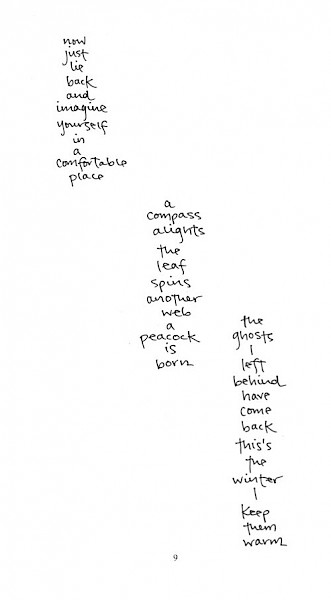 now
just
lie
back
and
imagine
yourself
in
a
comfortable
place
a
compass
alights
the
leaf
spins
another
web
a
peacock
is
born
the
ghosts
I
left
behind
have
come
back
this's
the
winter
I
keep
them
warm
9